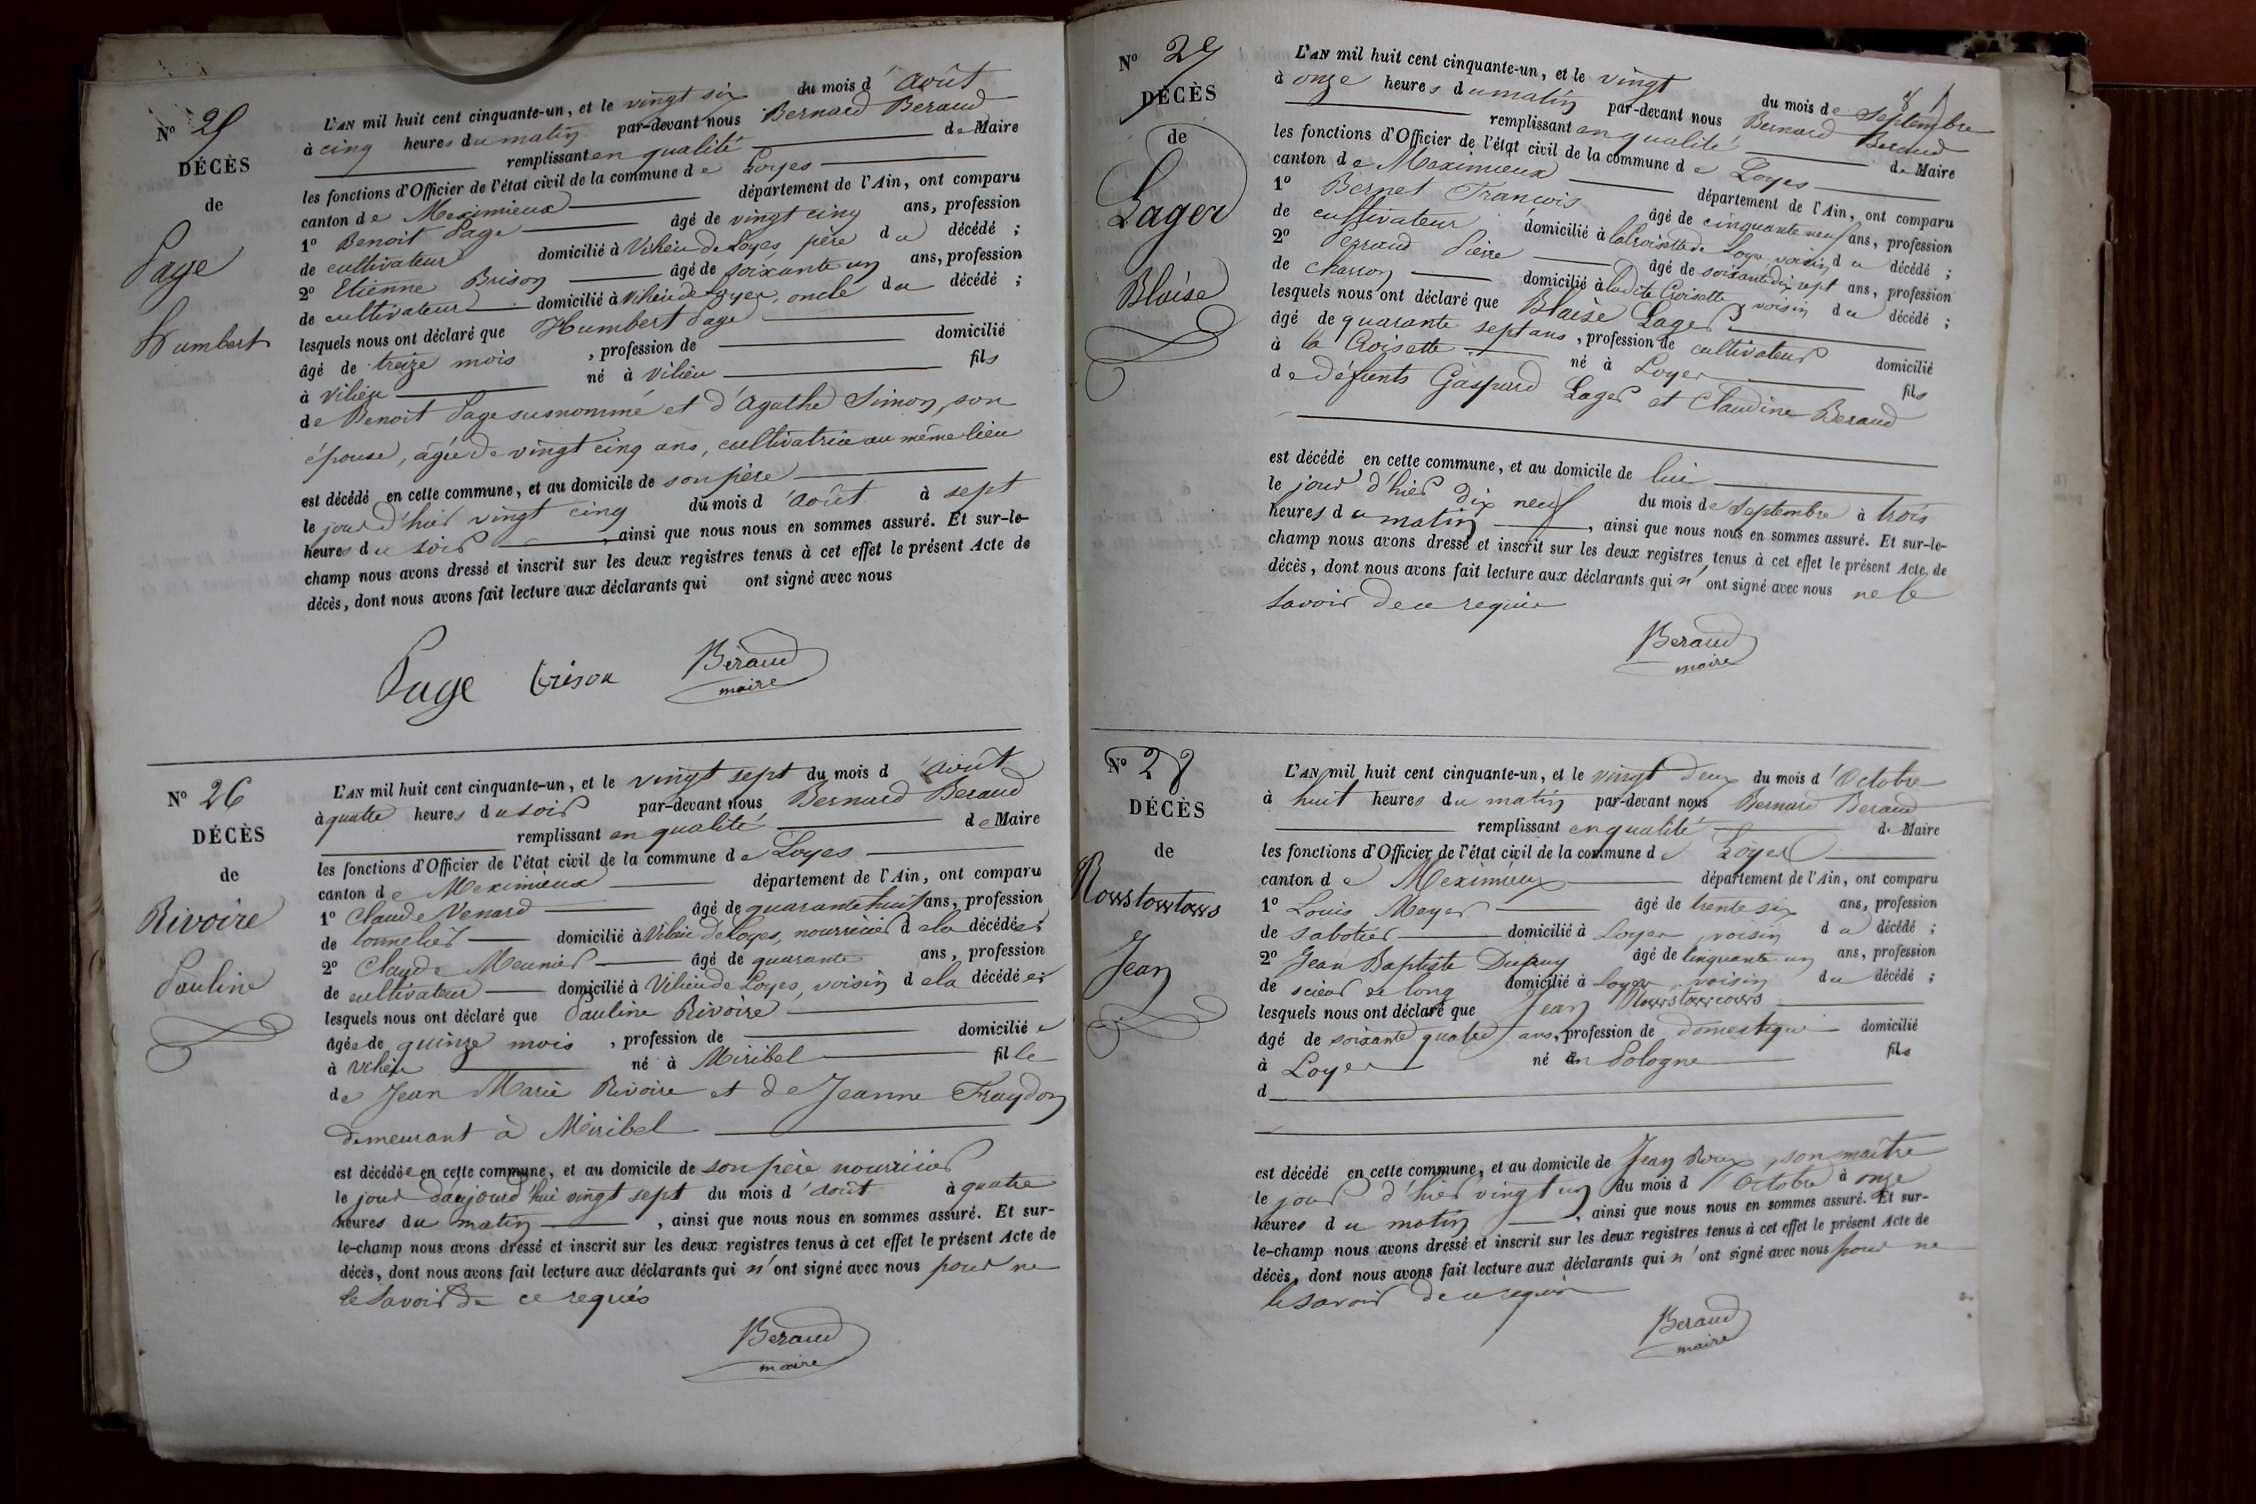 N° 25
DÉCÈS
de
Page
Humbert
L'AN mil huit cent cinquante-un, et le vingt six du mois d'août
à cinq heures du matin par-devant nous Bernard Beraud
remplissant en qualité de Maire
les fonctions d'Officier de l'état civil de la commune de Loyes
canton de Meximieux département de l'Ain, ont comparu
1° Benoit Page âgé de vingt cinq ans, profession
de cultivateur domicilié à Vilieu de Loyes, père du décédé ;
2° Etienne Brison âgé de soixante un ans, profession
de cultivateur domicilié à Vilieu de Loyes, oncle du décédé ;
lesquels nous ont déclaré que Humbert Page
âgé de treize mois, profession de domicilié
à Vilieu né à Vilieu fils
de Benoit Page susnommé et d'Agathe Simon, son
épouse, âgée de vingt cinq ans, cultivatrice au même lieu
est décédé en cette commune, et au domicile de son père
le jour d'hier vingt cinq du mois d'août à sept
heures du soir, ainsi que nous nous en sommes assuré. Et sur-le-
champ nous avons dressé et inscrit sur les deux registres tenus à cet effet le présent Acte de
décès, dont nous avons fait lecture aux déclarants qui ont signé avec nous
Page Brison Béraud
maire
N° 26
DÉCÈS
de
Rivoire
Pauline
L'AN mil huit cent cinquante-un, et le vingt sept du mois d'août
à quatre heures du soir par-devant nous Bernard Beraud
remplissant en qualité de Maire
les fonctions d'Officier de l'état civil de la commune de Loyes
canton de Meximieux département de l'Ain, ont comparu
1° Claude Venard âgé de quarante huit ans, profession
de tonnelier domicilié à Vilieu de Loyes, nourricier de la décédée ;
2° Claude Meunier âgé de quarante ans, profession
de cultivateur domicilié à Vilieu de Loyes, voisin de la décédée ;
lesquels nous ont déclaré que Pauline Rivoire
âgée de quinze mois, profession de domiciliée
à Vilieu né à Miribel fille
de Jean Marie Rivoire et de Jeanne Fraydon
demeurant à Miribel
est décédée en cette commune, et au domicile de son père nourricier
le jour d'aujourd'hui vingt sept du mois d'août à quatre
heures du matin, ainsi que nous nous en sommes assuré. Et sur-
le-champ nous avons dressé et inscrit sur les deux registres tenus à cet effet le présent Acte de
décès, dont nous avons fait lecture aux déclarants qui n'ont signé avec nous pour ne
le savoir de ce requis
Beraud
maire
N° 27
DÉCÈS
de
Lager
Blaise
L'AN mil huit cent cinquante-un, et le vingt du mois de Septembre
à onze heures du matin par-devant nous Bernard Beraud
remplissant en qualité de Maire
les fonctions d'Officier de l'état civil de la commune de Loyes
canton de Meximieux département de l'Ain, ont comparu
1° Bernet François âgé de cinquante neuf ans, profession
de cultivateur domicilié à la Croisette de Loyes voisin du décédé ;
2° Perraud Pierre âgé de soixante dix sept ans, profession
de charron domicilié à ladite Croisette, voisin du décédé ;
lesquels nous ont déclaré que Blaise Lager
âgé de quarante sept ans, profession de cultivateur domicilié
à la Croisette né à Loyes fils
de défunts Gaspard Lager et Claudine Beraud
est décédé en cette commune, et au domicile de lui
le jour d'hier dix neuf du mois de Septembre à trois
heures du matin, ainsi que nous nous en sommes assuré. Et sur-le-
champ nous avons dressé et inscrit sur les deux registres tenus à cet effet le présent Acte de
décès, dont nous avons fait lecture aux déclarants qui n'ont signé avec nous ne le
savoir de ce requis
Beraud
maire
N° 28
DÉCÈS
de
Jean
L'AN mil huit cent cinquante-un, et le vingt deux du mois d'Octobre
à huit heures du matin par-devant nous Bernard Beraud
remplissant en qualité de Maire
les fonctions d'Officier de l'état civil de la commune de Loyes
canton de Meximieux département de l'Ain, ont comparu
1° Louis Meyer âgé de trente six ans, profession
de sabotier domicilié à Loyes, voisin du décédé ;
2° Jean Baptiste Dupuy âgé de cinquante un ans, profession
de scieur de long domicilié à Loyes, voisin du décédé ;
lesquels nous ont déclaré que Jean
âgé de soixante quatre ans, profession de domestique domicilié
à Loyes né en Pologne fils
d
est décédé en cette commune, et au domicile de Jean Roux, son maître
le jour d'hier vingt un du mois d'Octobre à onze
heures du matin, ainsi que nous nous en sommes assuré. Et sur-
le-champ nous avons dressé et inscrit sur les deux registres tenus à cet effet le présent Acte de
décès, dont nous avons fait lecture aux déclarants qui n'ont signé avec nous pour ne
le savoir de ce requis
Beraud
maire